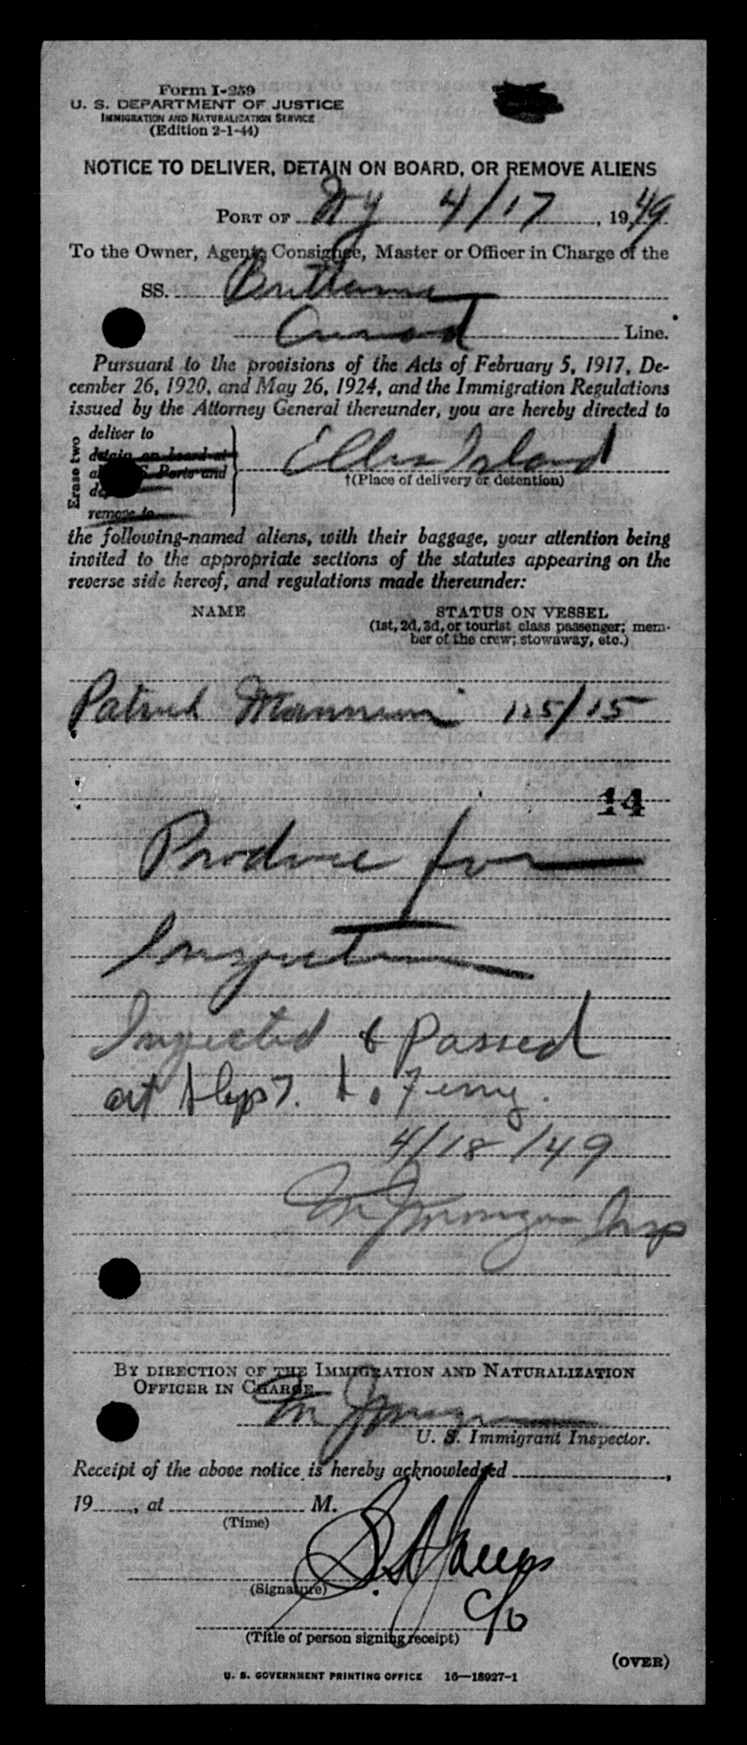 Form I-259
U. S. DEPARTMENT OF JUSTICE
IMMIGRATION AND NATURALIZATION SERVICE
(Edition 2-1-44)
NOTICE TO DELIVER, DETAIN ON BOARD, OR REMOVE ALIENS
PORT OF NY 4/17, 1949
To the Owner, Agent, Consignee, Master or Officer in Charge of the
SS. Brittannic
Cunard Line.
Pursuant to the provisions of the Acts of February 5, 1917, De-
cember 26, 1920, and May 26, 1924, and the Immigration Regulations
issued by the Attorney General thereunder, you are hereby directed to
Erase two
deliver to
detain on board at
Ports and
remove to
Ellis Island
†(Place of delivery or detention)
the following-named aliens, with their baggage, your attention being
invited to the appropriate sections of the statutes appearing on the
reverse side hereof, and regulations made thereunder:
NAME STATUS ON VESSEL
(1st, 2d, 3d, or tourist class passenger; mem-
ber of the crew; stowaway, etc.)
Patrick 125/15
14
Produce for
Inspection
Inspected & Passed
at
4/18/49
Insp
BY DIRECTION OF THE IMMIGRATION AND NATURALIZATION
OFFICER IN CHARGE
U. S. Immigrant Inspector.
Receipt of the above notice is hereby acknowledged
19 , at M.
(Time)
(Signature)
(Title of person signing receipt)
(OVER)
U. S. GOVERNMENT PRINTING OFFICE 16—18927-1